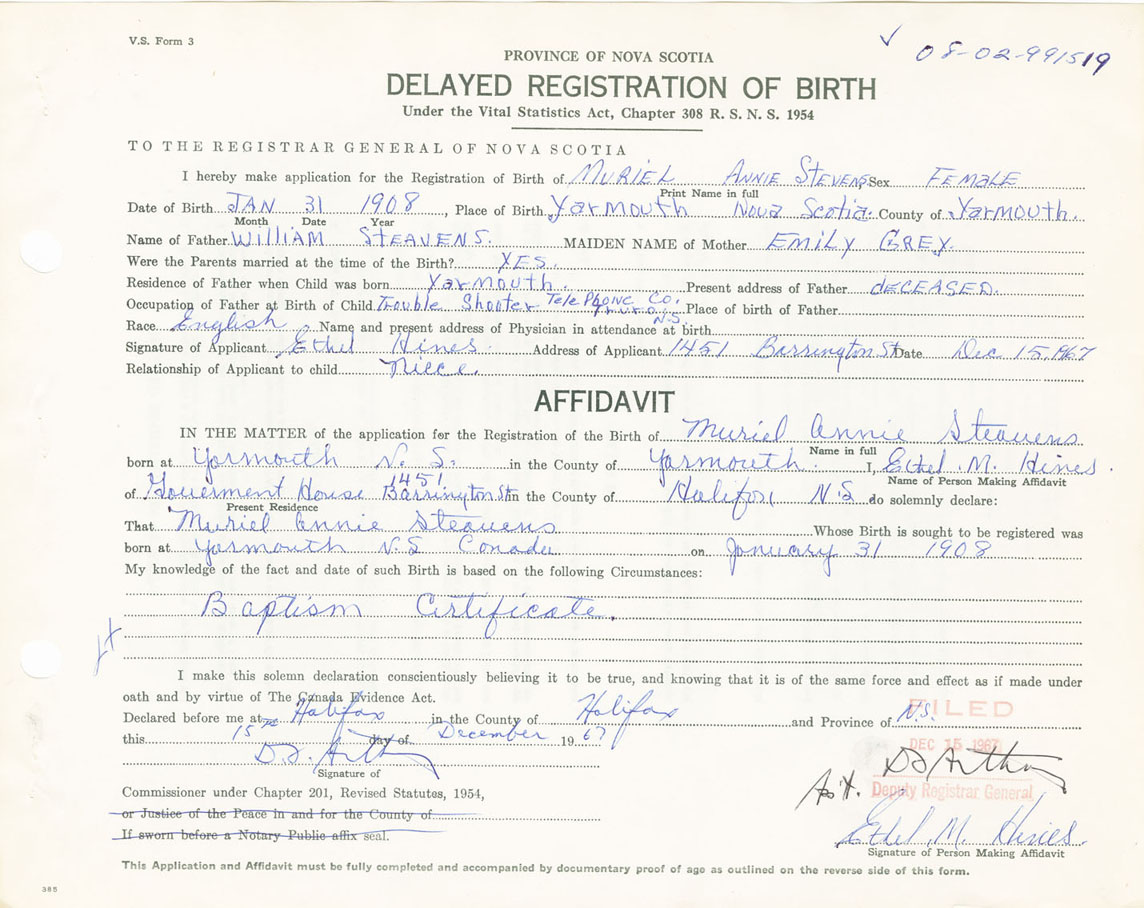 V.S. Form 3
✓ 08-02-991519
PROVINCE OF NOVA SCOTIA
DELAYED REGISTRATION OF BIRTH
Under the Vital Statistics Act, Chapter 308 R. S. N. S. 1954
TO THE REGISTRAR GENERAL OF NOVA SCOTIA
I hereby make application for the Registration of Birth of MURIEL ANNIE STEVENS Sex FEMALE
Print Name in full
Date of Birth JAN 31 1908, Place of Birth Yarmouth Nova Scotia. County of Yarmouth.
Month Date Year
Name of Father WILLIAM STEAVENS. MAIDEN NAME of Mother EMILY GREY.
Were the Parents married at the time of the Birth? YES.
Residence of Father when Child was born Yarmouth. Present address of Father DECEASED.
Occupation of Father at Birth of Child Trouble Shooter TelePhone Co. Truro, N.S. Place of birth of Father
Race English, Name and present address of Physician in attendance at birth
Signature of Applicant Ethel Hines. Address of Applicant 1451 Barrington St Date Dec 15, 1967
Relationship of Applicant to child Niece.
AFFIDAVIT
IN THE MATTER of the application for the Registration of the Birth of Muriel Annie Steavens
Name in full
born at Yarmouth N. S. in the County of Yarmouth. I, Ethel M. Hines.
Name of Person Making Affidavit
of Gouverment House 1451 Barrington St. in the County of Halifax N.S. do solemnly declare:
Present Residence
That Muriel Annie Steavens Whose Birth is sought to be registered was
born at Yarmouth N.S Canada on January 31 1908
My knowledge of the fact and date of such Birth is based on the following Circumstances:
Baptism Certificate.
I make this solemn declaration conscientiously believing it to be true, and knowing that it is of the same force and effect as if made under
oath and by virtue of The Canada Evidence Act.
Declared before me at Halifax in the County of Halifax and Province of N.S.
FILED
this 15th day of December 1967
DEC 15 1967
D.J. Arthur
Signature of
D J Arthur
Deputy Registrar General
Commissioner under Chapter 201, Revised Statutes, 1954,
or Justice of the Peace in and for the County of
If sworn before a Notary Public affix seal.
Ethel M. Hines
Signature of Person Making Affidavit
This Application and Affidavit must be fully completed and accompanied by documentary proof of age as outlined on the reverse side of this form.
385